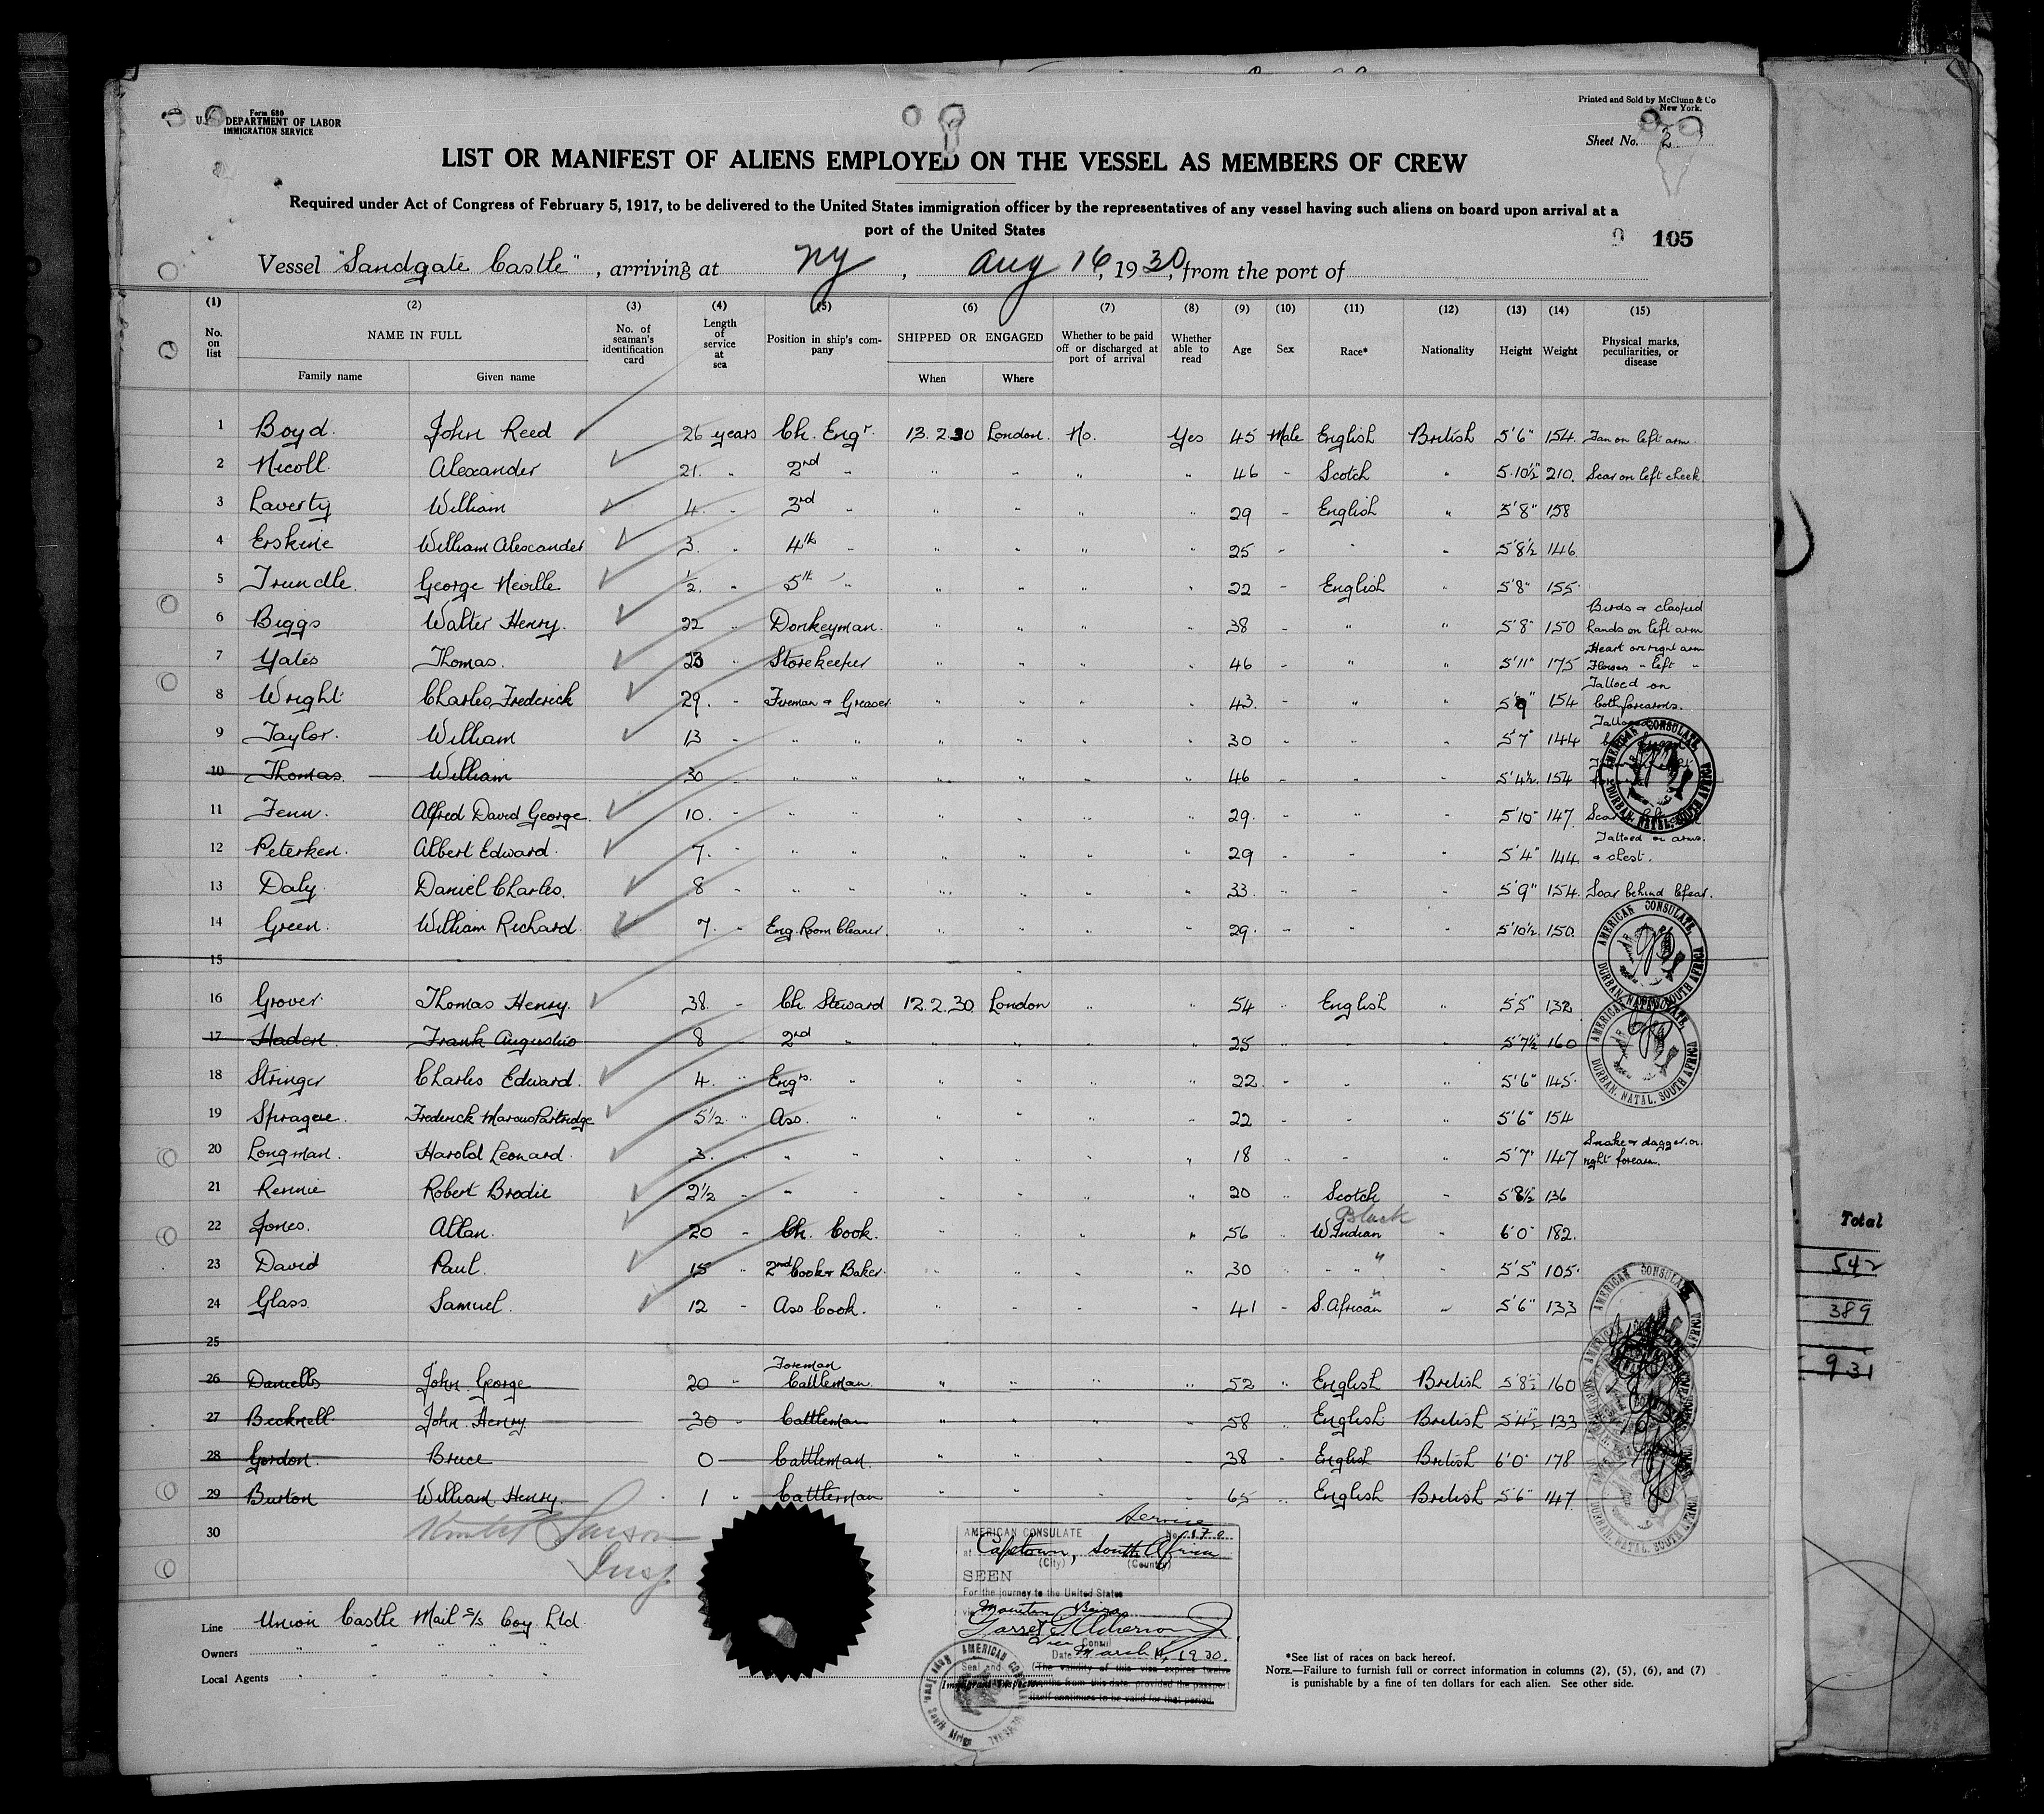 Form 680
U.S. DEPARTMENT OF LABOR
IMMIGRATION SERVICE
Printed and Sold by McClunn & Co
New York.
Sheet No. 2
LIST OR MANIFEST OF ALIENS EMPLOYED ON THE VESSEL AS MEMBERS OF CREW
Required under Act of Congress of February 5, 1917, to be delivered to the United States immigration officer by the representatives of any vessel having such aliens on board upon arrival at a
port of the United States
105
Vessel "Sandgate Castle", arriving at NY, Aug 16, 1930, from the port of
(1) (2) (3) (4) (5) (6) (7) (8) (9) (10) (11) (12) (13) (14) (15)
No. on list NAME IN FULL Family name Given name No. of seaman's identification card Length of service at sea Position in ship's company SHIPPED OR ENGAGED When Where Whether to be paid off or discharged at port of arrival Whether able to read Age Sex Race* Nationality Height Weight Physical marks, peculiarities, or disease
1 Boyd. John Reed 26 years Ch. Engr. 13.2.30 London. No. Yes 45 Male English British 5'6" 154. on left arm
2 Nicoll. Alexander 21. " 2nd " " " " " 46 " Scotch " 5.10½" 210. Scar on left cheek
3 Laverty William 4. " 3rd " " " " " 29 " English " 5'8" 158
4 Erskine William Alexander 3. " 4th " " " " " 25 " " " 5'8½ 146
5 Trundle. George Neville ½. " 5th " " " " " 22 " English " 5'8" 155
6 Biggs Walter Henry. 22 " Donkeyman. " " " " 38 " " " 5'8" 150 Birds & clasped hands on left arm
7 Yates Thomas. 23 " Storekeeper " " " " 46 " " " 5'11" 175 Heart on right arm Flowers " left "
8 Wright Charles Frederick 29. " Fireman & Greaser " " " " 43. " " " 5'9" 154 Tattoed on both forearms.
9 Taylor. William 13 " " " " " " " 30 " " " 5'7" 144
10 Thomas. William 30 " " " " " " " 46 " " " 5'4½. 154
11 Fenn. Alfred David George. 10. " " " " " " " 29. " " " 5'10" 147. Scar
12 Peterken. Albert Edward. 7. " " " " " " " 29 " " " 5'4" 144 Tattoed on arms. & chest.
13 Daly. Daniel Charles. 8 " " " " " " " 33. " " " 5'9" 154. Scar behind left ear.
14 Green. William Richard. 7. " Eng. Room Cleaner. " " " " 29. " " " 5'10½ 150.
15
16 Grover. Thomas Henry. 38. " Ch. Steward 12.2.30 London " " 54 " English " 5'5" 132
17 Haden. Frank 8 " 2nd " " " " " 25 " " " 5'7½" 160
18 Stringer Charles Edward. 4. " Engrs. " " " " " 22. " " " 5'6" 145.
19 Sprague. Frederick Marcus Partridge 5½ " Ass. " " " " " 22 " " " 5'6" 154
20 Longman. Harold Leonard. 3. " " " " " " " 18 " " " 5'7" 147 Snake & dagger on right forearm.
21 Rennie Robert Brodie 2½ " " " " " " " 20 " Scotch " 5'8½" 136
22 Jones. Allan. 20 " Ch. Cook. " " " " 56 " Black W. Indian " 6'0" 182.
23 David Paul. 15 " 2nd Cook & Baker. " " " " 30 " " " " 5'5" 105.
24 Glass. Samuel. 12 " Ass Cook. " " " " 41 " S. African " " 5'6" 133
25
26 Daniells John George 20 " Foreman Cattleman. " " " 52 " English British 5'8½" 160
27 Bicknell John Henry 30 " Cattleman " " " 58 English British 5'4½ 133
28 Gordon. Bruce 0 Cattleman. " " " 38 " English British 6'0" 178
29 Burton William Henry. 1 " Cattleman " " " 65 " English British 5'6" 147
30
Insp.
Line Union Castle Mail S/S Coy. Ltd.
Owners " " " " "
Local Agents " " " " "
Service
AMERICAN CONSULATE No.
at Capetown, South Africa
(City) (Country)
SEEN
For the journey to the United States
Vice Consul
Date March 4, 1930.
Seal and
(The validity of this visa expires twelve
months from this date, provided the passport
itself continues to be valid for that period.
Immigrant Inspector.
*See list of races on back hereof.
NOTE.—Failure to furnish full or correct information in columns (2), (5), (6), and (7)
is punishable by a fine of ten dollars for each alien. See other side.
AMERICAN CONSULATE, DURBAN, NATAL, SOUTH AFRICA
AMERICAN CONSULATE, DURBAN, NATAL, SOUTH AFRICA
AMERICAN CONSULATE, DURBAN, NATAL, SOUTH AFRICA
Total
542
389
931